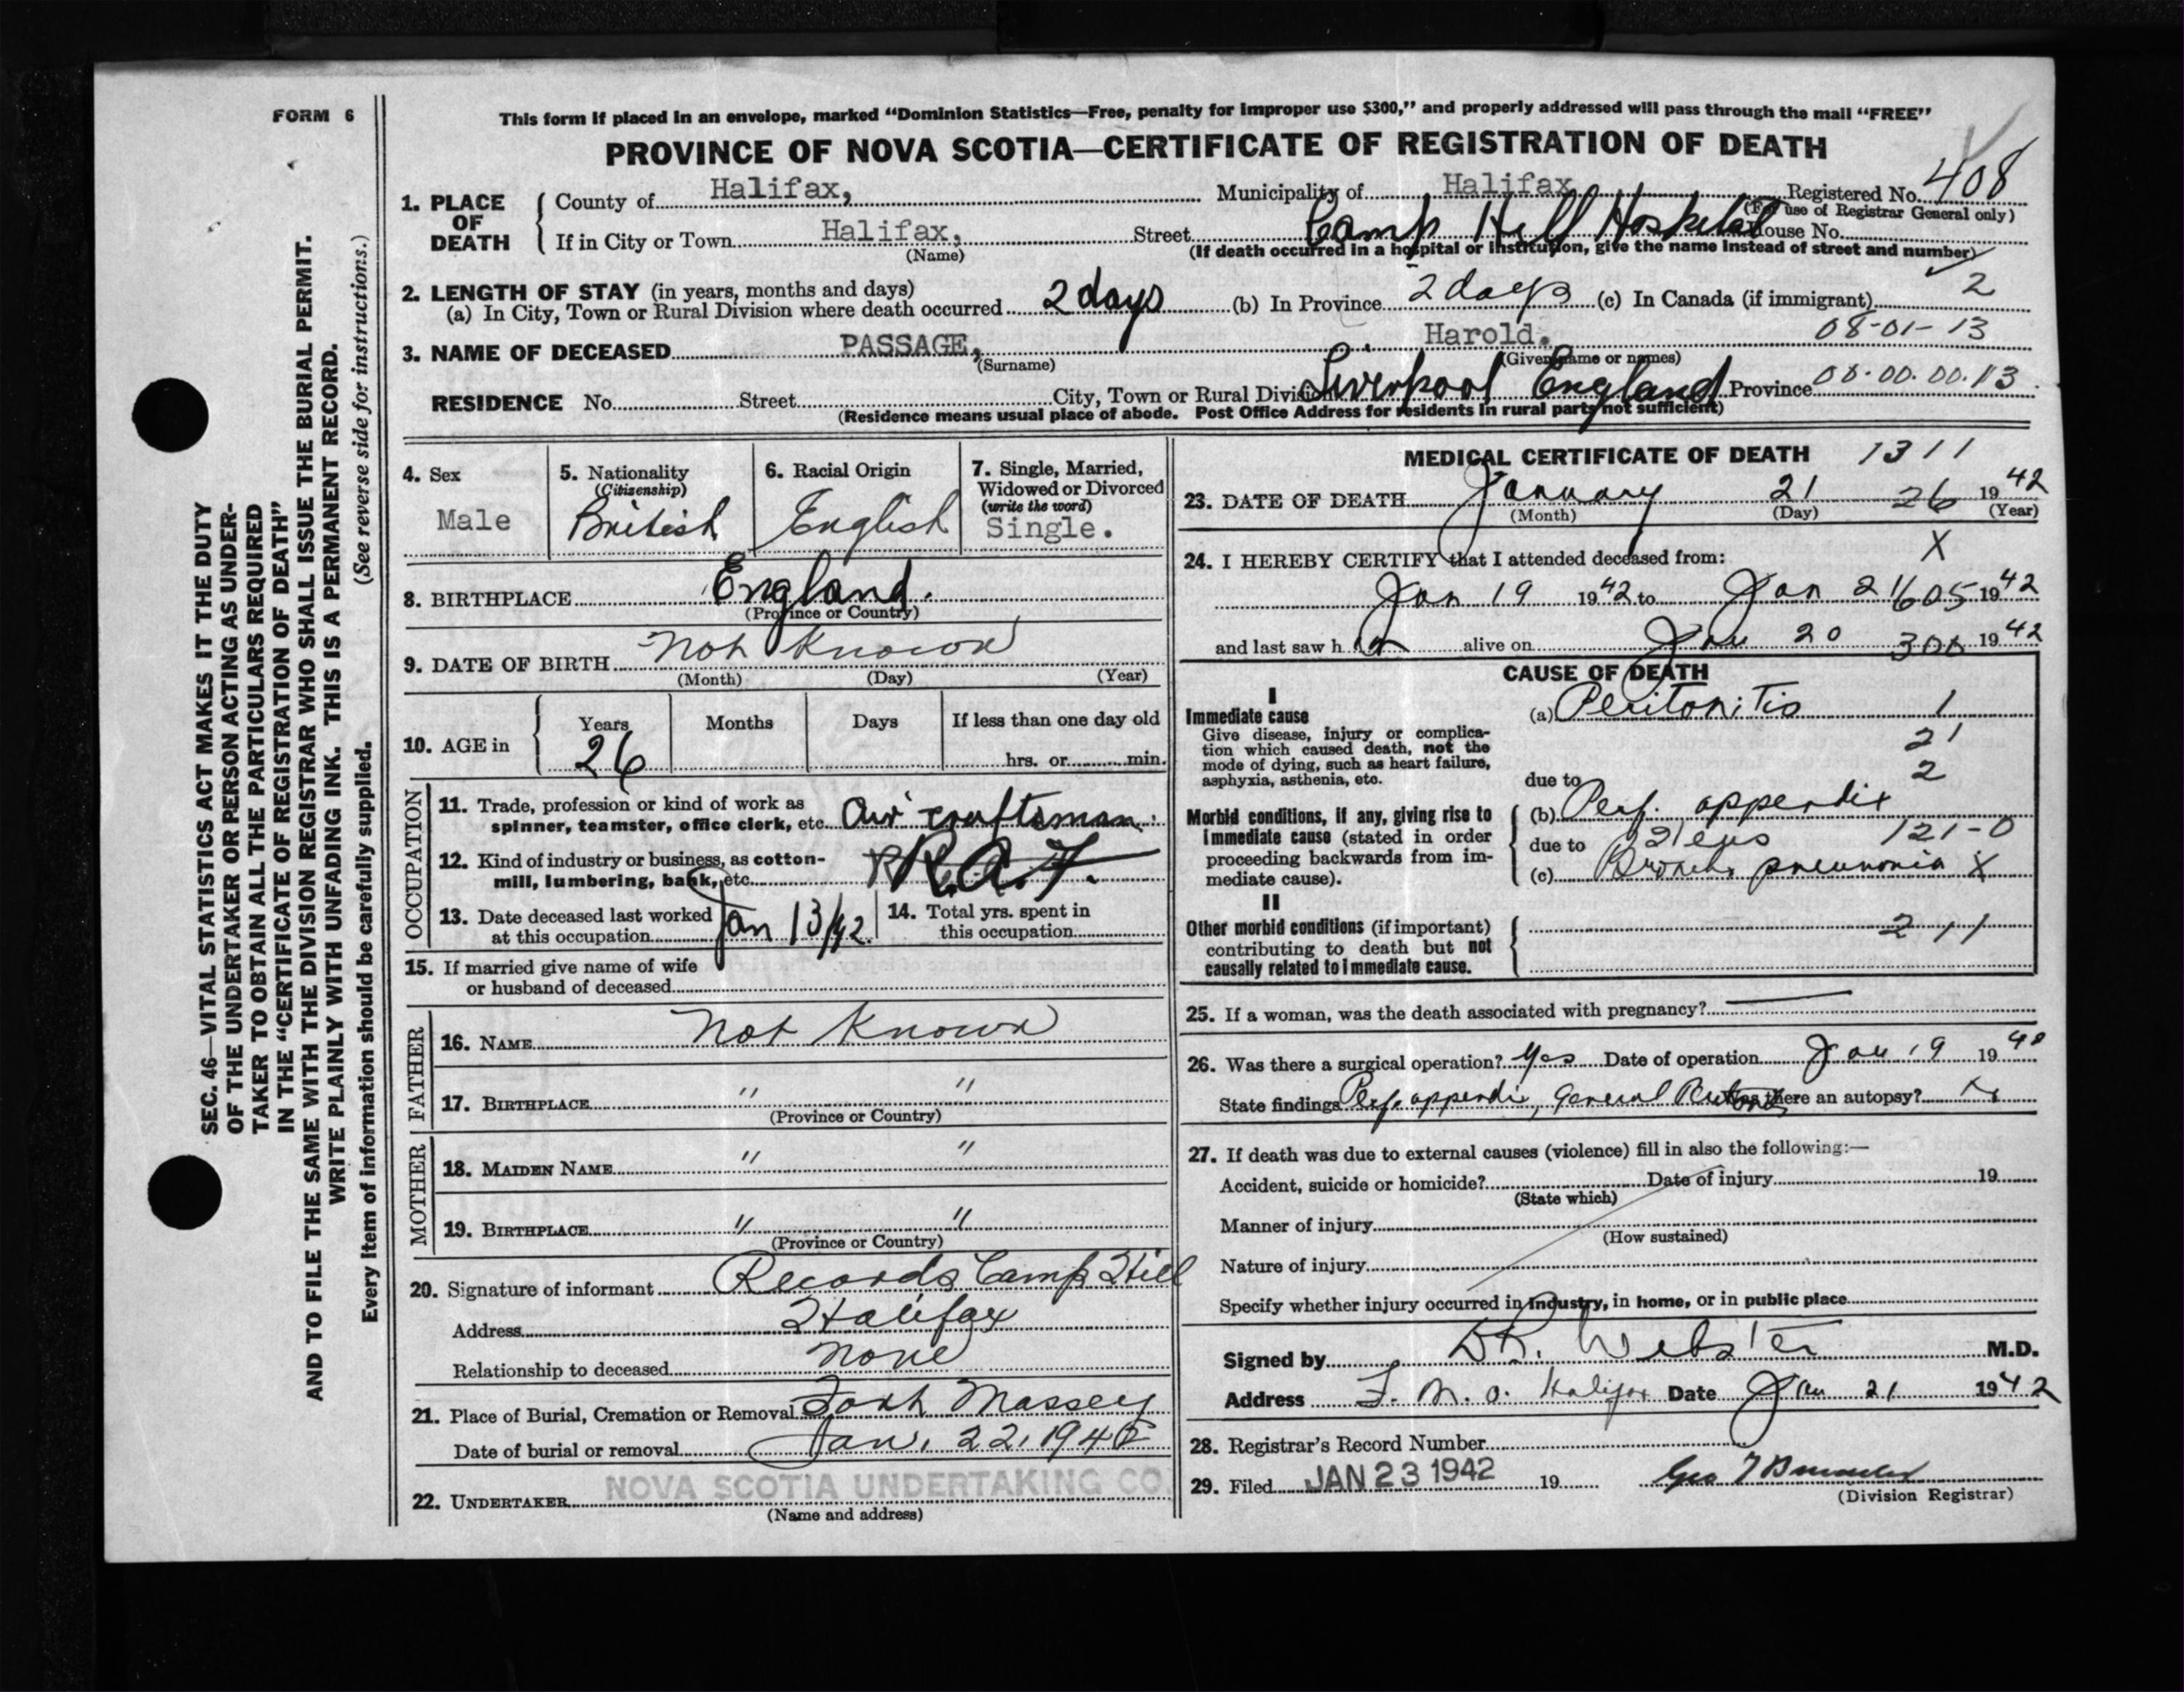 FORM 6
This form if placed in an envelope, marked “Dominion Statistics—Free, penalty for improper use $300,” and properly addressed will pass through the mail “FREE”
PROVINCE OF NOVA SCOTIA—CERTIFICATE OF REGISTRATION OF DEATH
SEC. 46—VITAL STATISTICS ACT MAKES IT THE DUTY
OF THE UNDERTAKER OR PERSON ACTING AS UNDER-
TAKER TO OBTAIN ALL THE PARTICULARS REQUIRED
IN THE “CERTIFICATE OF REGISTRATION OF DEATH”
AND TO FILE THE SAME WITH THE DIVISION REGISTRAR WHO SHALL ISSUE THE BURIAL PERMIT.
WRITE PLAINLY WITH UNFADING INK. THIS IS A PERMANENT RECORD.
Every item of information should be carefully supplied. (See reverse side for instructions.)
1. PLACE OF DEATH
County of Halifax, Municipality of Halifax Registered No. 408
(For use of Registrar General only)
If in City or Town Halifax, Street Camp Hill Hospital House No.
(Name) (If death occurred in a hospital or institution, give the name instead of street and number)
2. LENGTH OF STAY (in years, months and days)
(a) In City, Town or Rural Division where death occurred 2 days (b) In Province 2 days (c) In Canada (if immigrant) 2
08-01-13
3. NAME OF DECEASED PASSAGE, Harold.
(Surname) (Given name or names)
RESIDENCE No. Street City, Town or Rural Division Liverpool England Province 00.00.00.13
(Residence means usual place of abode. Post Office Address for residents in rural parts not sufficient)
4. Sex Male
5. Nationality (Citizenship) British
6. Racial Origin English
7. Single, Married, Widowed or Divorced (write the word) Single.
8. BIRTHPLACE England.
(Province or Country)
9. DATE OF BIRTH Not Known
(Month) (Day) (Year)
10. AGE in Years 26 Months Days If less than one day old
hrs. or min.
OCCUPATION
11. Trade, profession or kind of work as
spinner, teamster, office clerk, etc. Air craftsman.
12. Kind of industry or business, as cotton-
mill, lumbering, bank, etc. R.A.F.
13. Date deceased last worked
at this occupation Jan 13/42
14. Total yrs. spent in
this occupation
15. If married give name of wife
or husband of deceased
FATHER
16. NAME Not Known
17. BIRTHPLACE " "
(Province or Country)
MOTHER
18. MAIDEN NAME " "
19. BIRTHPLACE " "
(Province or Country)
20. Signature of informant Records Camp Hill
Address Halifax
Relationship to deceased None
21. Place of Burial, Cremation or Removal Fort Massey
Date of burial or removal Jan. 22, 1942
22. UNDERTAKER NOVA SCOTIA UNDERTAKING CO.
(Name and address)
MEDICAL CERTIFICATE OF DEATH 1311
23. DATE OF DEATH January 21 26 1942
(Month) (Day) (Year)
24. I HEREBY CERTIFY that I attended deceased from: X
Jan 19 1942 to Jan 21 605 1942
and last saw h im alive on Jan 20 300 1942
CAUSE OF DEATH
I
Immediate cause
Give disease, injury or complica-
tion which caused death, not the
mode of dying, such as heart failure,
asphyxia, asthenia, etc.
(a) Peritonitis 1
21
2
due to
Morbid conditions, if any, giving rise to
immediate cause (stated in order
proceeding backwards from im-
mediate cause).
(b) Perf. appendix
due to Ileus 121-0
(c) Broncho pneumonia X
II
Other morbid conditions (if important)
contributing to death but not
causally related to immediate cause.
211
25. If a woman, was the death associated with pregnancy?
26. Was there a surgical operation? Yes Date of operation Jan 19 19
State findings Perf. appendix, General Was there an autopsy?
27. If death was due to external causes (violence) fill in also the following:—
Accident, suicide or homicide? Date of injury 19
(State which)
Manner of injury
(How sustained)
Nature of injury
Specify whether injury occurred in industry, in home, or in public place
Signed by Webster M.D.
Address Halifax Date Jan 21 1942
28. Registrar’s Record Number
29. Filed JAN 23 1942 19
(Division Registrar)